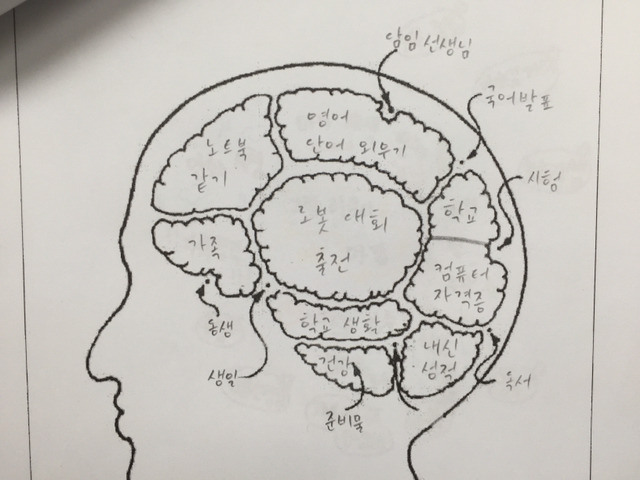 담임 선생님
국어 발표
영어
단어 외우기
노트북
갖기
시험
학교
로봇 대회
출전
가족
컴퓨터
자격증
동생
학교 생활
생일
건강
내신
성적
독서
준비물